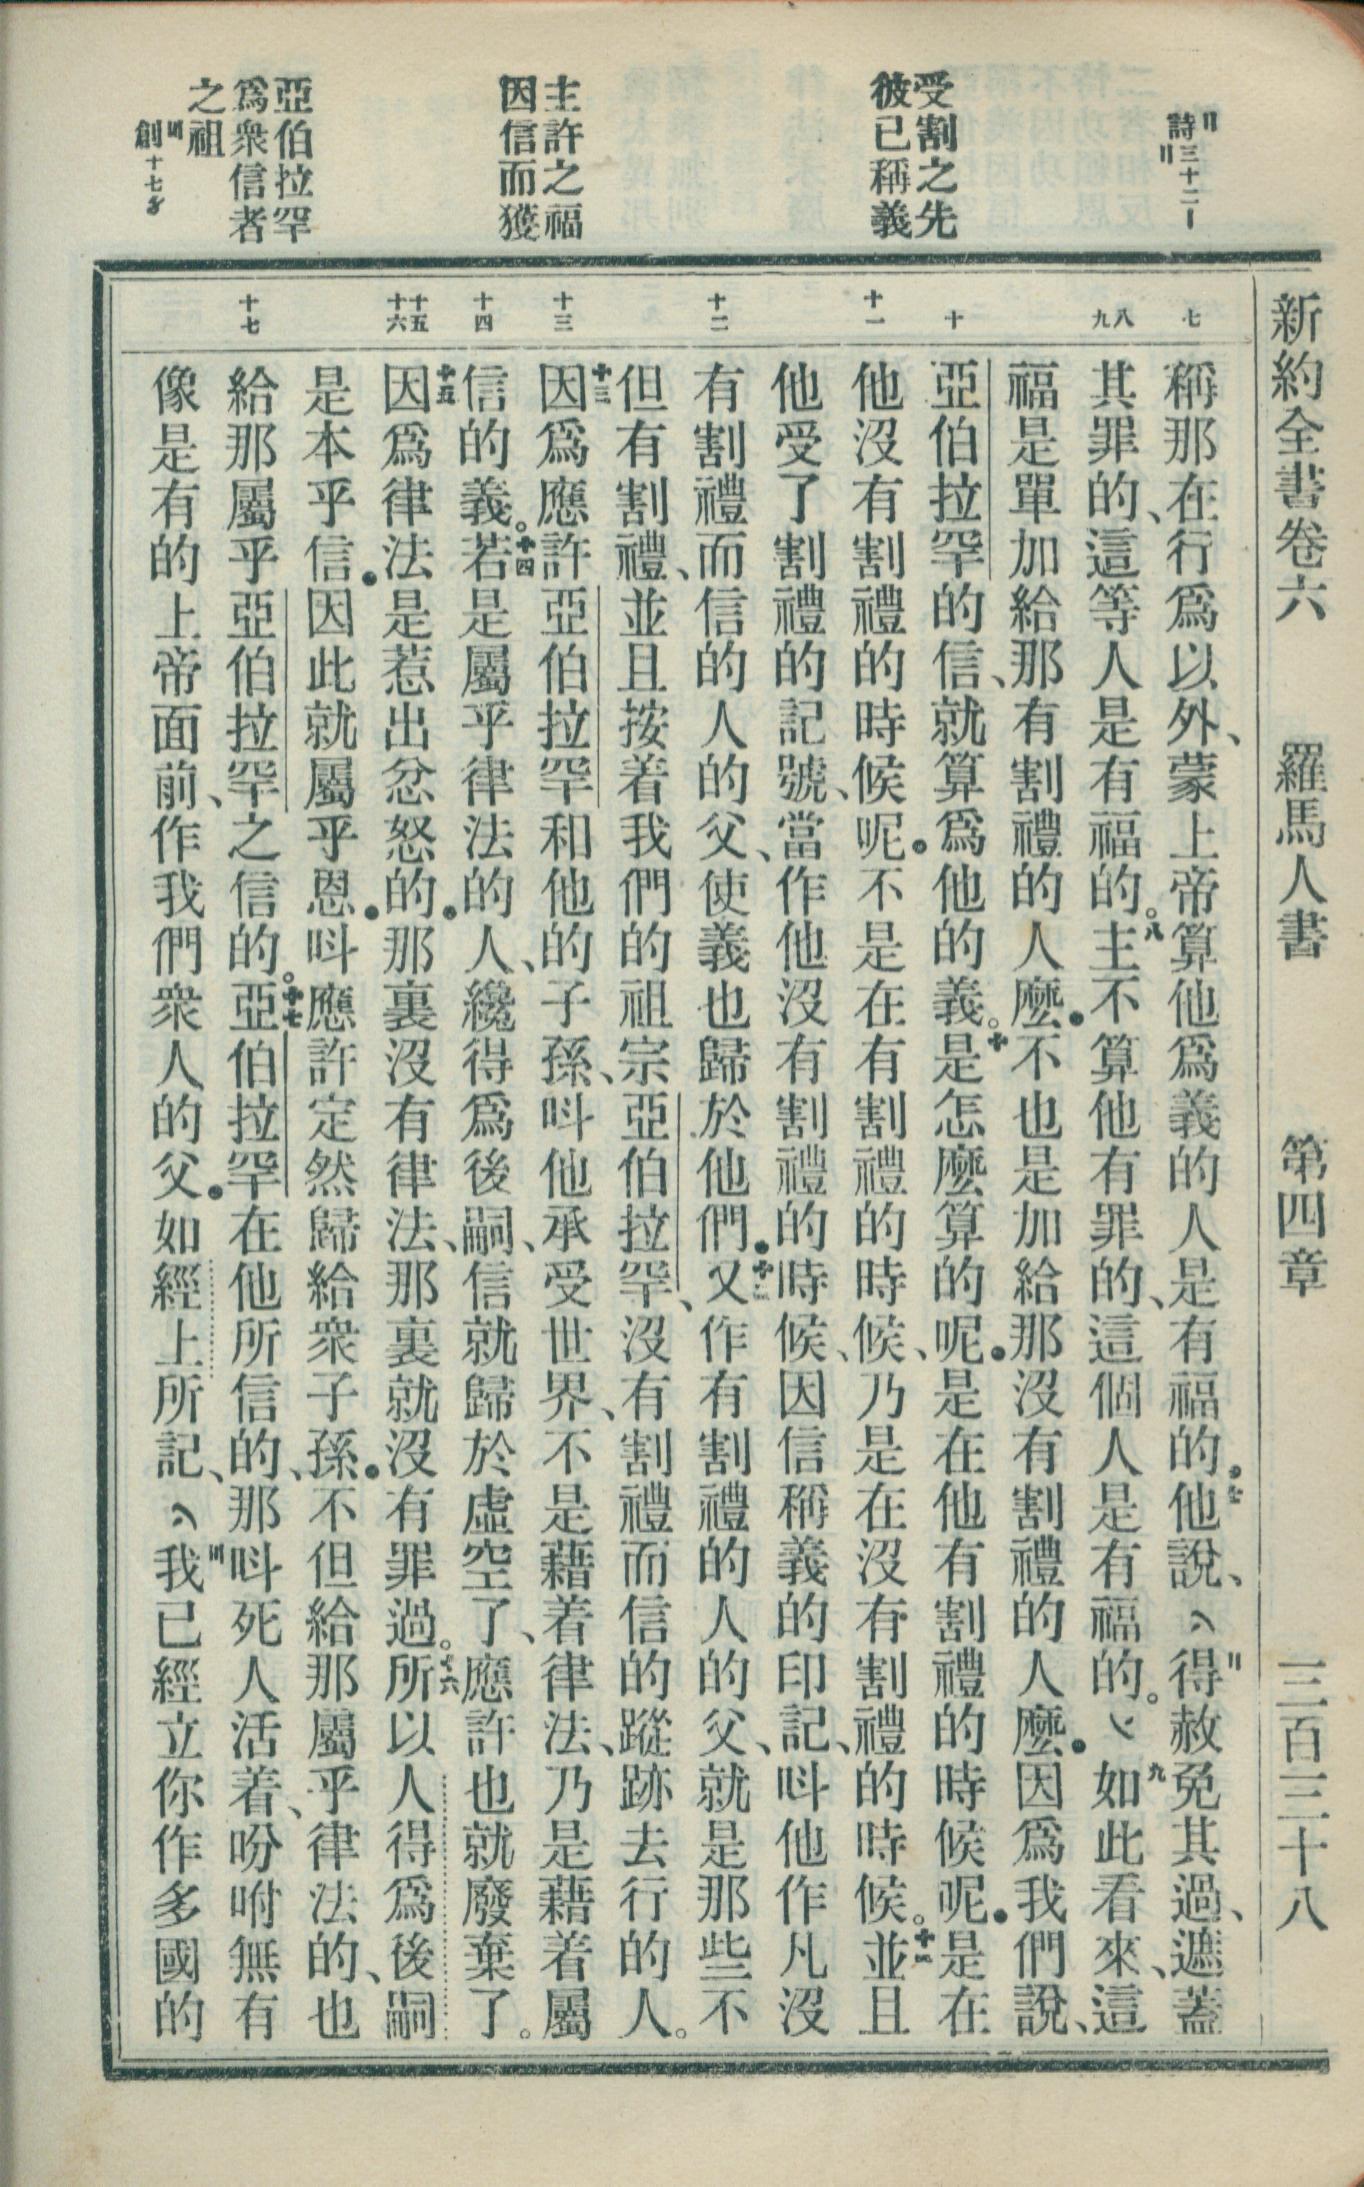 新約全書卷六 羅馬人書 第四章 三百三十八
詩三十二1
受割之先
彼已稱義
主許之福
因信而獲
亞伯拉罕
爲衆信者
之祖
創十七5
七
八
九
十
十一
十二
十三
十四
十五
十六
十七
稱那在行爲以外、蒙上帝算他爲義的人是有福的.七他說、得赦免其過、遮蓋
其罪的、這等人是有福的。八主不算他有罪的、這個人是有福的。九如此看來、這
福是單加給那有割禮的人麼.不也是加給那沒有割禮的人麼.因爲我們說、
亞伯拉罕的信、就算爲他的義。十是怎麼算的呢.是在他有割禮的時候呢.是在
他沒有割禮的時候呢.不是在有割禮的時候、乃是在沒有割禮的時候。十一並且
他受了割禮的記號、當作他沒有割禮的時候、因信稱義的印記、呌他作凡沒
有割禮而信的人的父、使義也歸於他們.十二又作有割禮的人的父、就是那些不
但有割禮、並且按着我們的祖宗亞伯拉罕、沒有割禮而信的蹤跡去行的人。
十三因爲應許亞伯拉罕和他的子孫、呌他承受世界、不是藉着律法、乃是藉着屬
信的義。十四若是屬乎律法的人、纔得爲後嗣、信就歸於虛空了、應許也就廢棄了。
十五因爲律法是惹出忿怒的.那裏沒有律法、那裏就沒有罪過。十六所以人得爲後嗣
是本乎信.因此就屬乎恩.呌應許定然歸給衆子孫.不但給那屬乎律法的、也
給那屬乎亞伯拉罕之信的。十七亞伯拉罕在他所信的、那呌死人活着、吩咐無有
像是有的上帝面前、作我們衆人的父.如經上所記、我已經立你作多國的